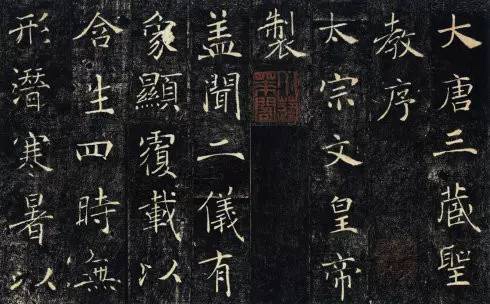 大唐三藏聖
教序
太宗文皇帝
製
盖聞二儀有
象顯覆載以
含生四時無
形潛寒暑以